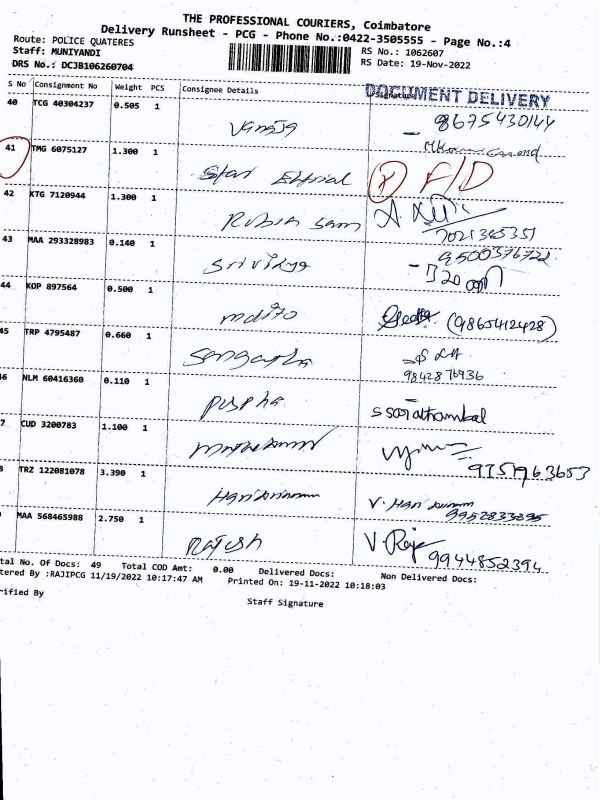 THE PROFESSIONAL COURIERS, Coimbatore
Delivery Runsheet - PCG - Phone No.:0422-3505555 - Page No.:4
Route: POLICE QUATERES
RS No.: 1062607
Staff: MUNIYANDI
RS Date: 19-Nov-2022
DRS No.: DCJB106260704
S No Consignment No Weight PCS Consignee Details Signature
DOCUMENT DELIVERY
40 TCG 40304237 0.505 1
8675430144
41 TMG 6075127 1.300 1 Star F/D
42 KTG 7120944 1.300 1 Rubia Sam
43 MAA 293328983 0.140 1 Srividya
9500376722
44 KOP 897564 0.500 1 (9865412428)
45 TRP 4795487 0.660 1 Sangeetha
46 NLM 60416360 0.110 1 puspha
7 CUD 3200783 1.100 1
9751963653
8 TRZ 122081078 3.390 1 V. Hari
MAA 568465988 2.750 1 Rajesh V. Raje
9944852394
tal No. Of Docs: 49 Total COD Amt: 0.00 Delivered Docs: Non Delivered Docs:
tered By :RAJIPCG 11/19/2022 10:17:47 AM Printed On: 19-11-2022 10:18:03
rified By
Staff Signature